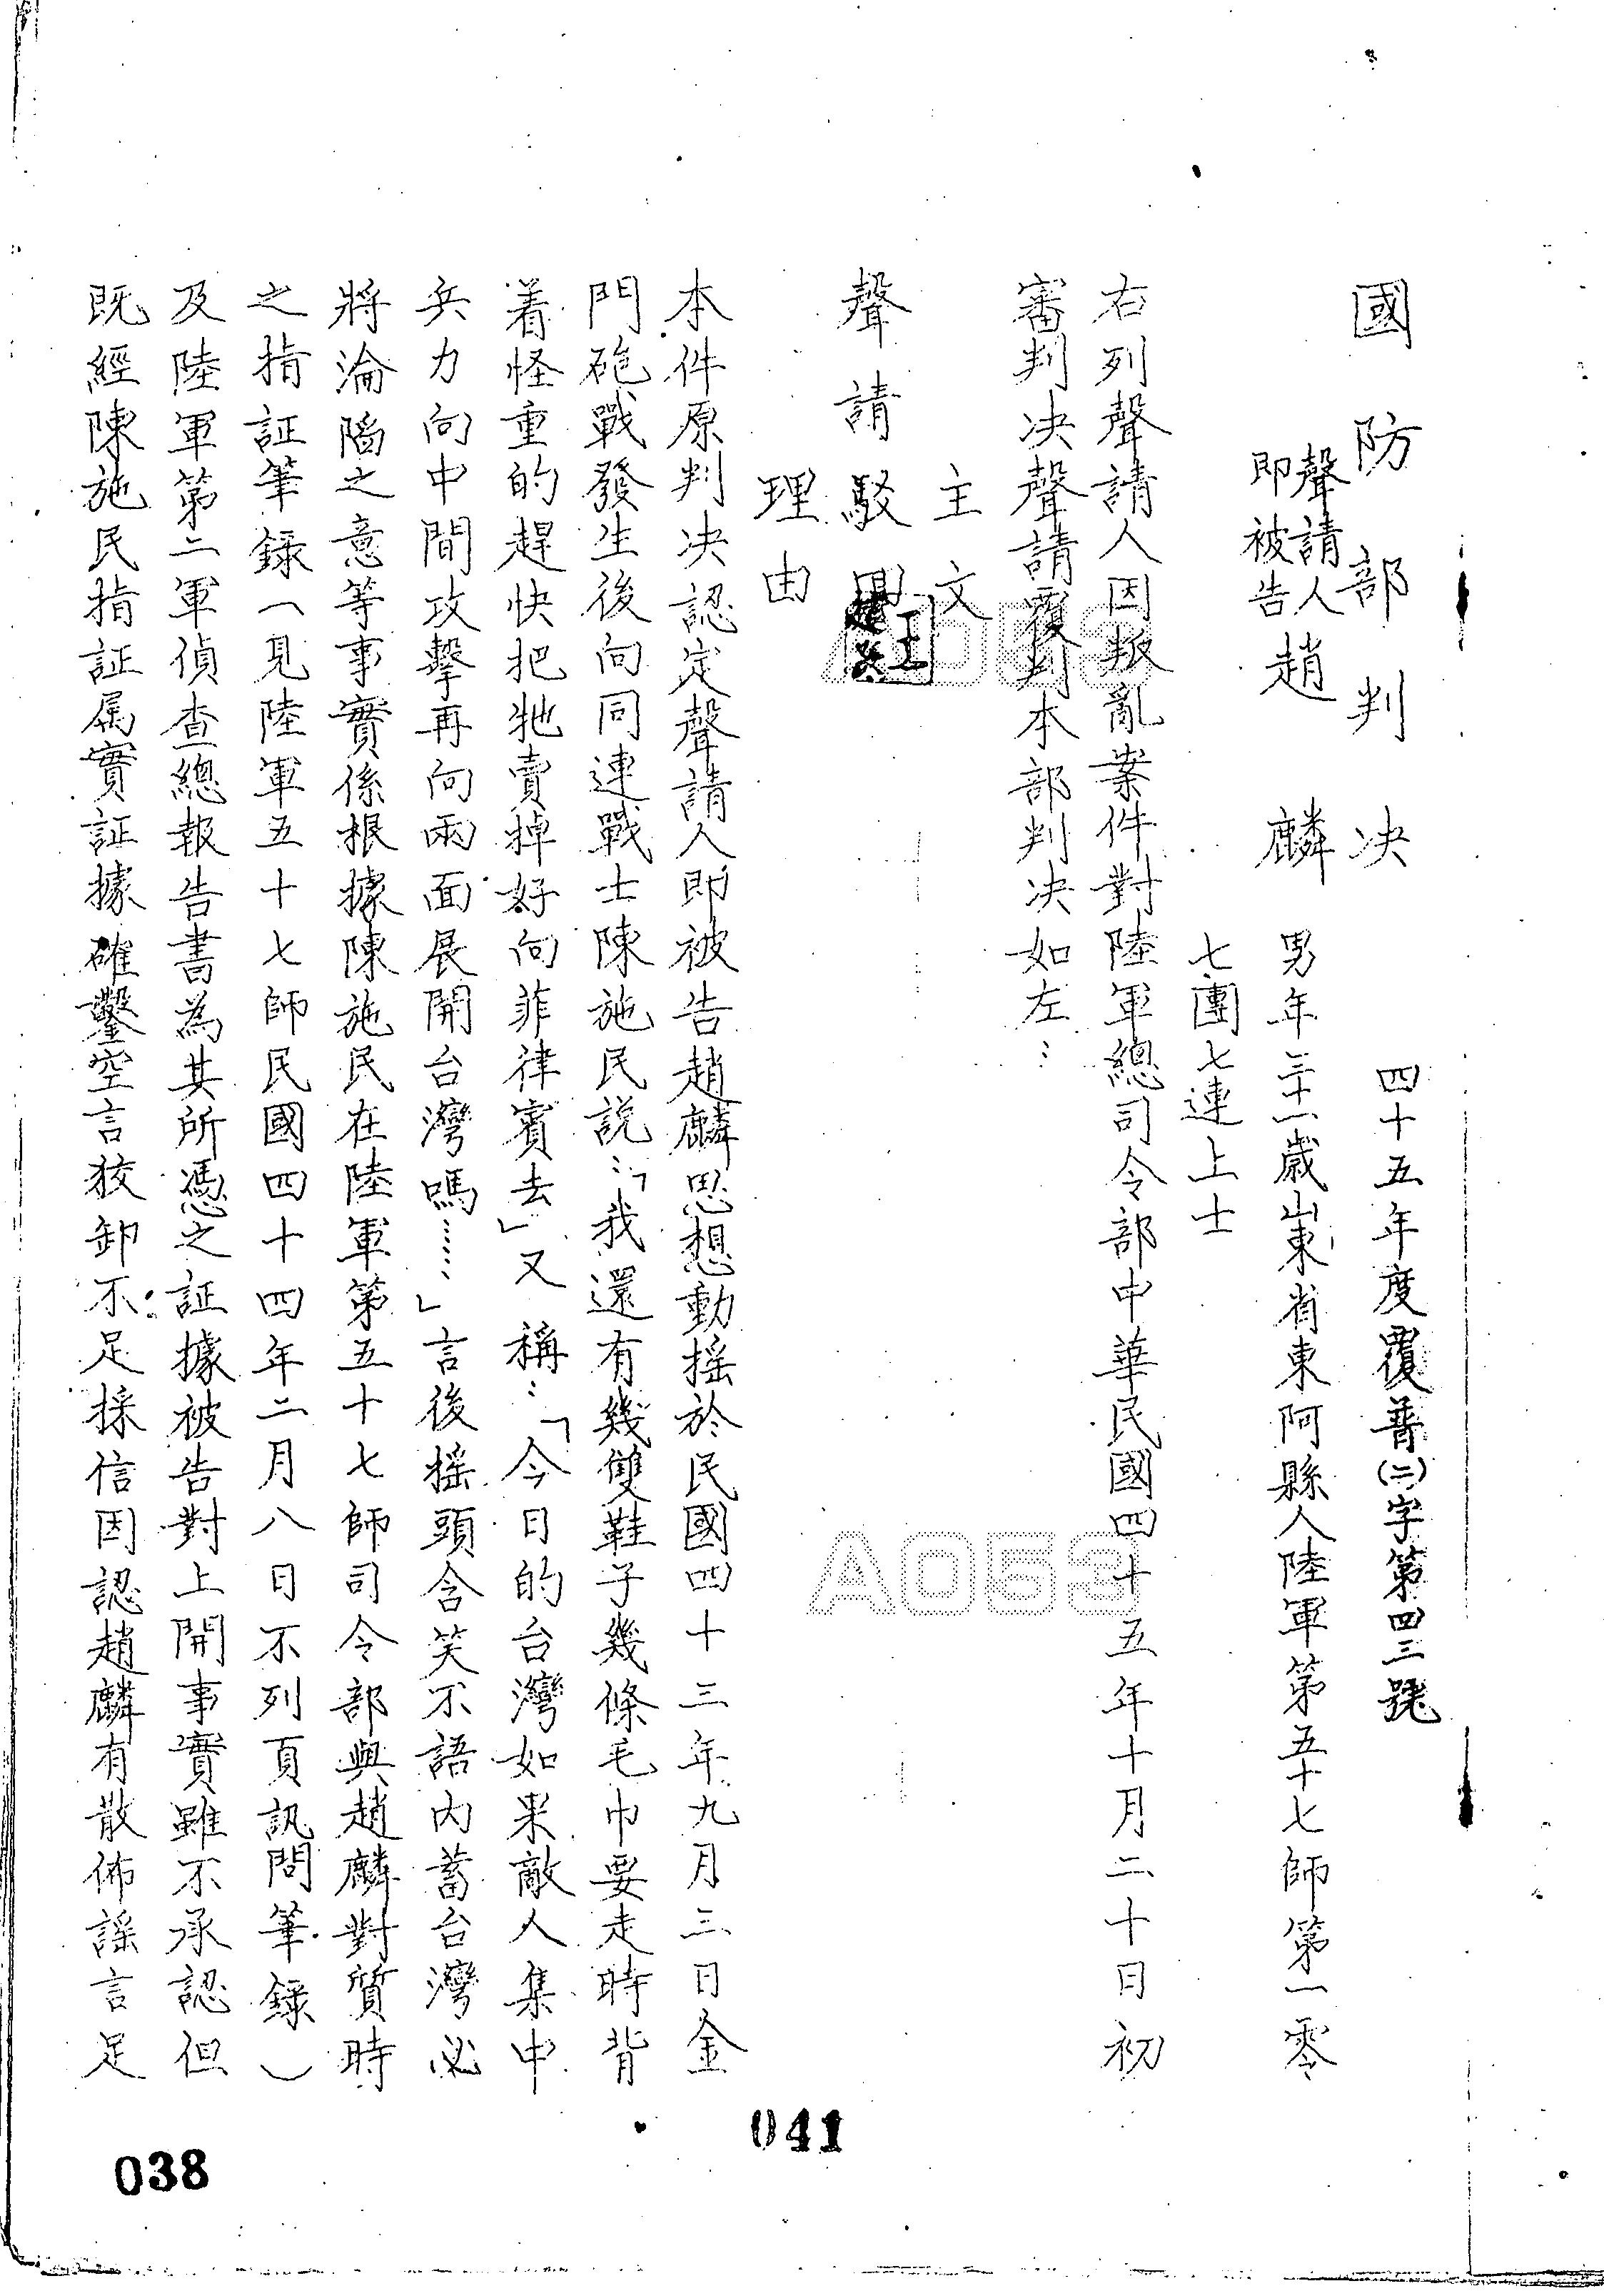 國防部判決
四十五年度覆普(二)字第四三號
聲請人
即被告
趙麟
男年三十一歲山東省東阿縣人陸軍第五十七師第一零
七團七連上士
右列聲請人因叛亂案件對陸軍總司令部中華民國四十五年十月二十日初
審判决聲請覆判本部判决如左：
主文
聲請駁回
理由
本件原判决認定聲請人即被告趙麟思想動搖於民國四十三年九月三日金
門砲戰發生後向同連戰士陳施民說：「我還有幾雙鞋子幾條毛巾要走時背
着怪重的趕快把牠賣掉好向菲律賓去」又稱：「今日的台灣如果敵人集中
兵力向中間攻擊再向兩面展開台灣嗎……」言後搖頭含笑不語內蓄台灣必
將淪陷之意等事實係根據陳施民在陸軍第五十七師司令部與趙麟對質時
之指証筆錄（見陸軍五十七師民國四十四年二月八日不列頁訊問筆錄）
及陸軍第二軍偵查總報告書為其所憑之証據被告對上開事實雖不承認但
既經陳施民指証属實証據確鑿空言狡卸不足採信因認趙麟有散佈謠言足
A053
A053
041
038